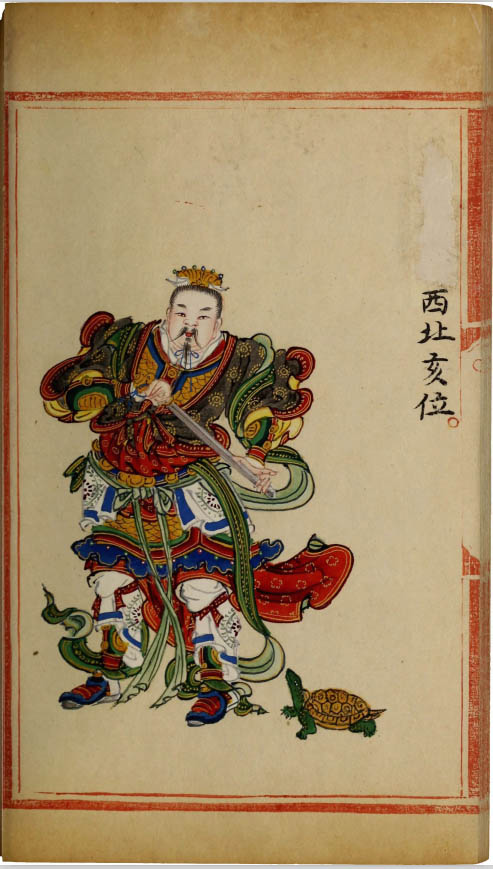 西北亥位